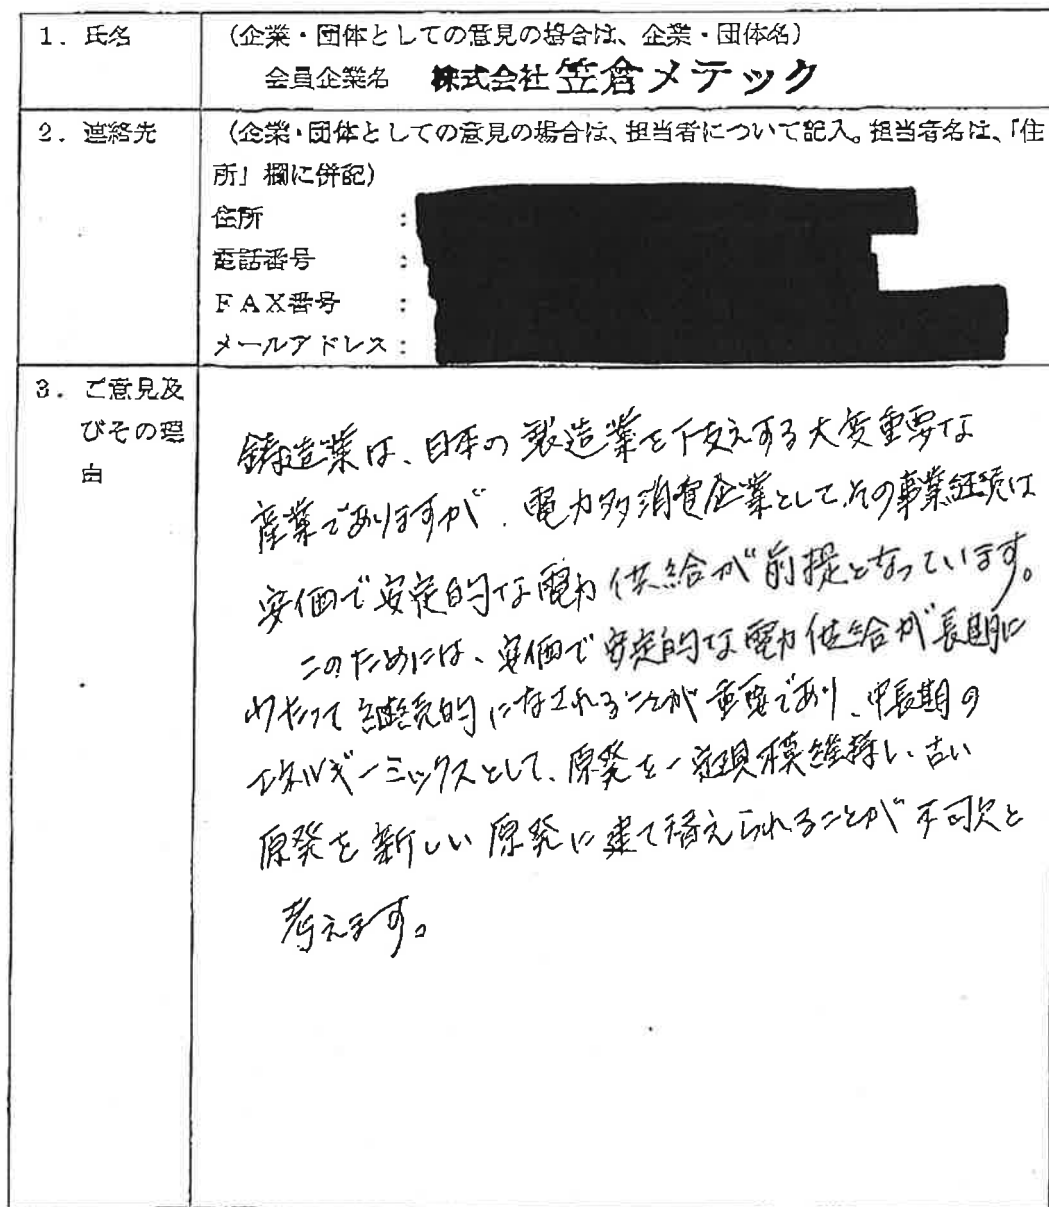 1. 氏名
(企業・団体としての意見の場合は、企業・団体名)
会員企業名 株式会社笠倉メテック
2. 連絡先
(企業・団体としての意見の場合は、担当者について記入。担当者名は、「住
所」欄に併記)
住所 :
電話番号 :
FAX番号 :
メールアドレス:
3. ご意見及
びその理
由
鋳造業は、日本の製造業を下支えする大変重要な
産業でありますが、電力多消費企業として、その事業継続は
安価で安定的な電力供給が前提となっています。
このためには、安価で安定的な電力供給が長期に
わたって継続的になされることが重要であり、中長期の
エネルギーミックスとして、原発を一定規模維持し、古い
原発を新しい原発に建て替えられることが不可欠と
考えます。